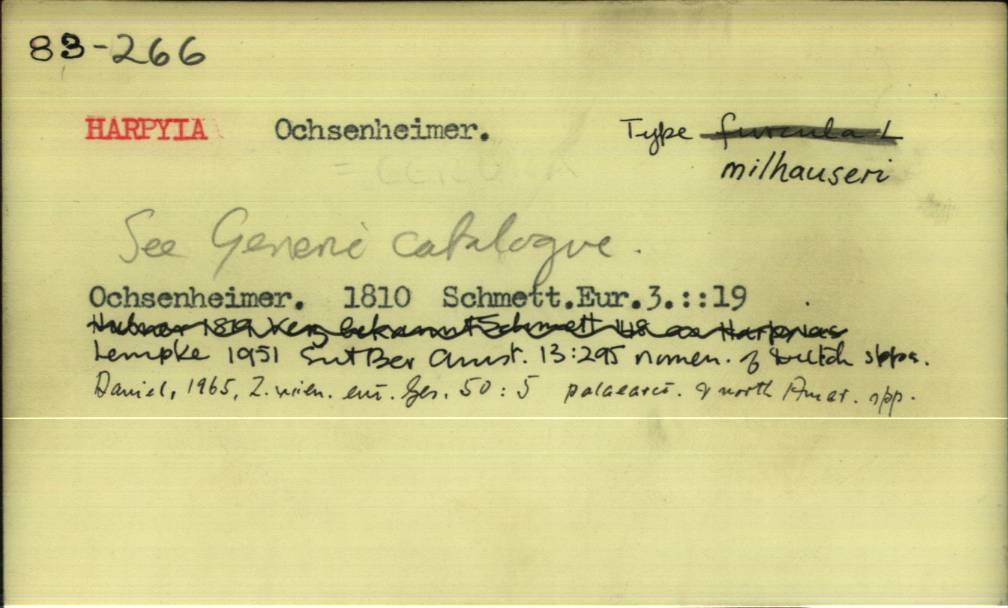 83-266
HARPYIA Ochsenheimer. Type furcula L
milhauseri
= CERURA
See Generic catalogue.
Ochsenheimer. 1810 Schmett.Eur.3.::19
Hubner 1819 Verz bekannt Schmett 148 as Harpyias
Lempke 1951 Ent Ber Amst. 13:295 nomen. of Dutch spps.
Daniel, 1965, Z. wien. ent. Ges. 50:5 palaearct. & north Amer. spp.